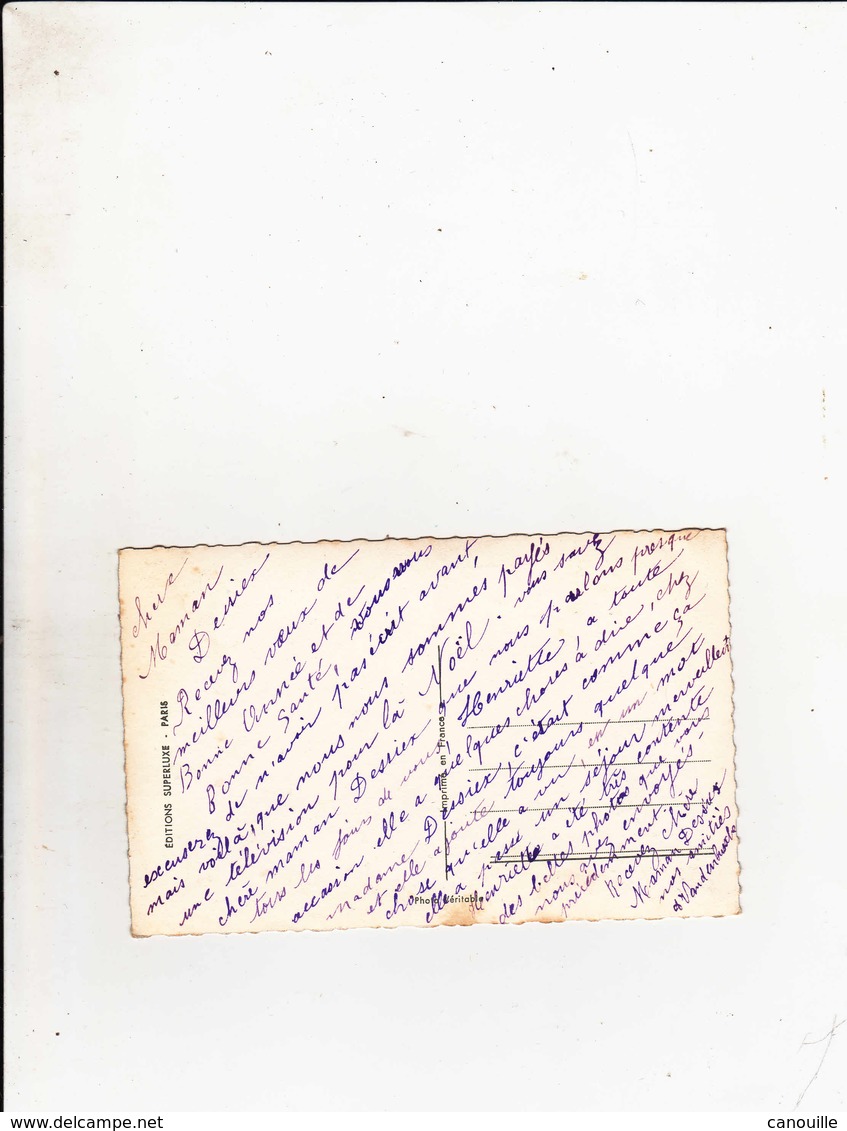 chere
Maman
Desiex
Recevez nos
meilleurs vœux de
Bonne Année et de
Bonne Santé, vous nous
excuserez de n'avoir pas écrit avant,
mais voilà, que nous nous sommes payés
une télévision pour la Noël. vous savez
chère maman Desiex que nous parlons presque
tous les jours de vous, Henriette à toute
occasion elle a quelques choses à dire, chez
madame Desiex c'était comme ça
et elle ajoute toujours quelque
chose qu'elle a vu en un mot
elle a passé un séjour merveilleux
Henriette a été très contente
des belles photos que vous
nous avez envoyés
précédemment.
Recevez chère
Maman Desiex
nos amitiés
ÉDITIONS SUPERLUXE - PARIS
Imprimé en France
Photo Véritable
canouille